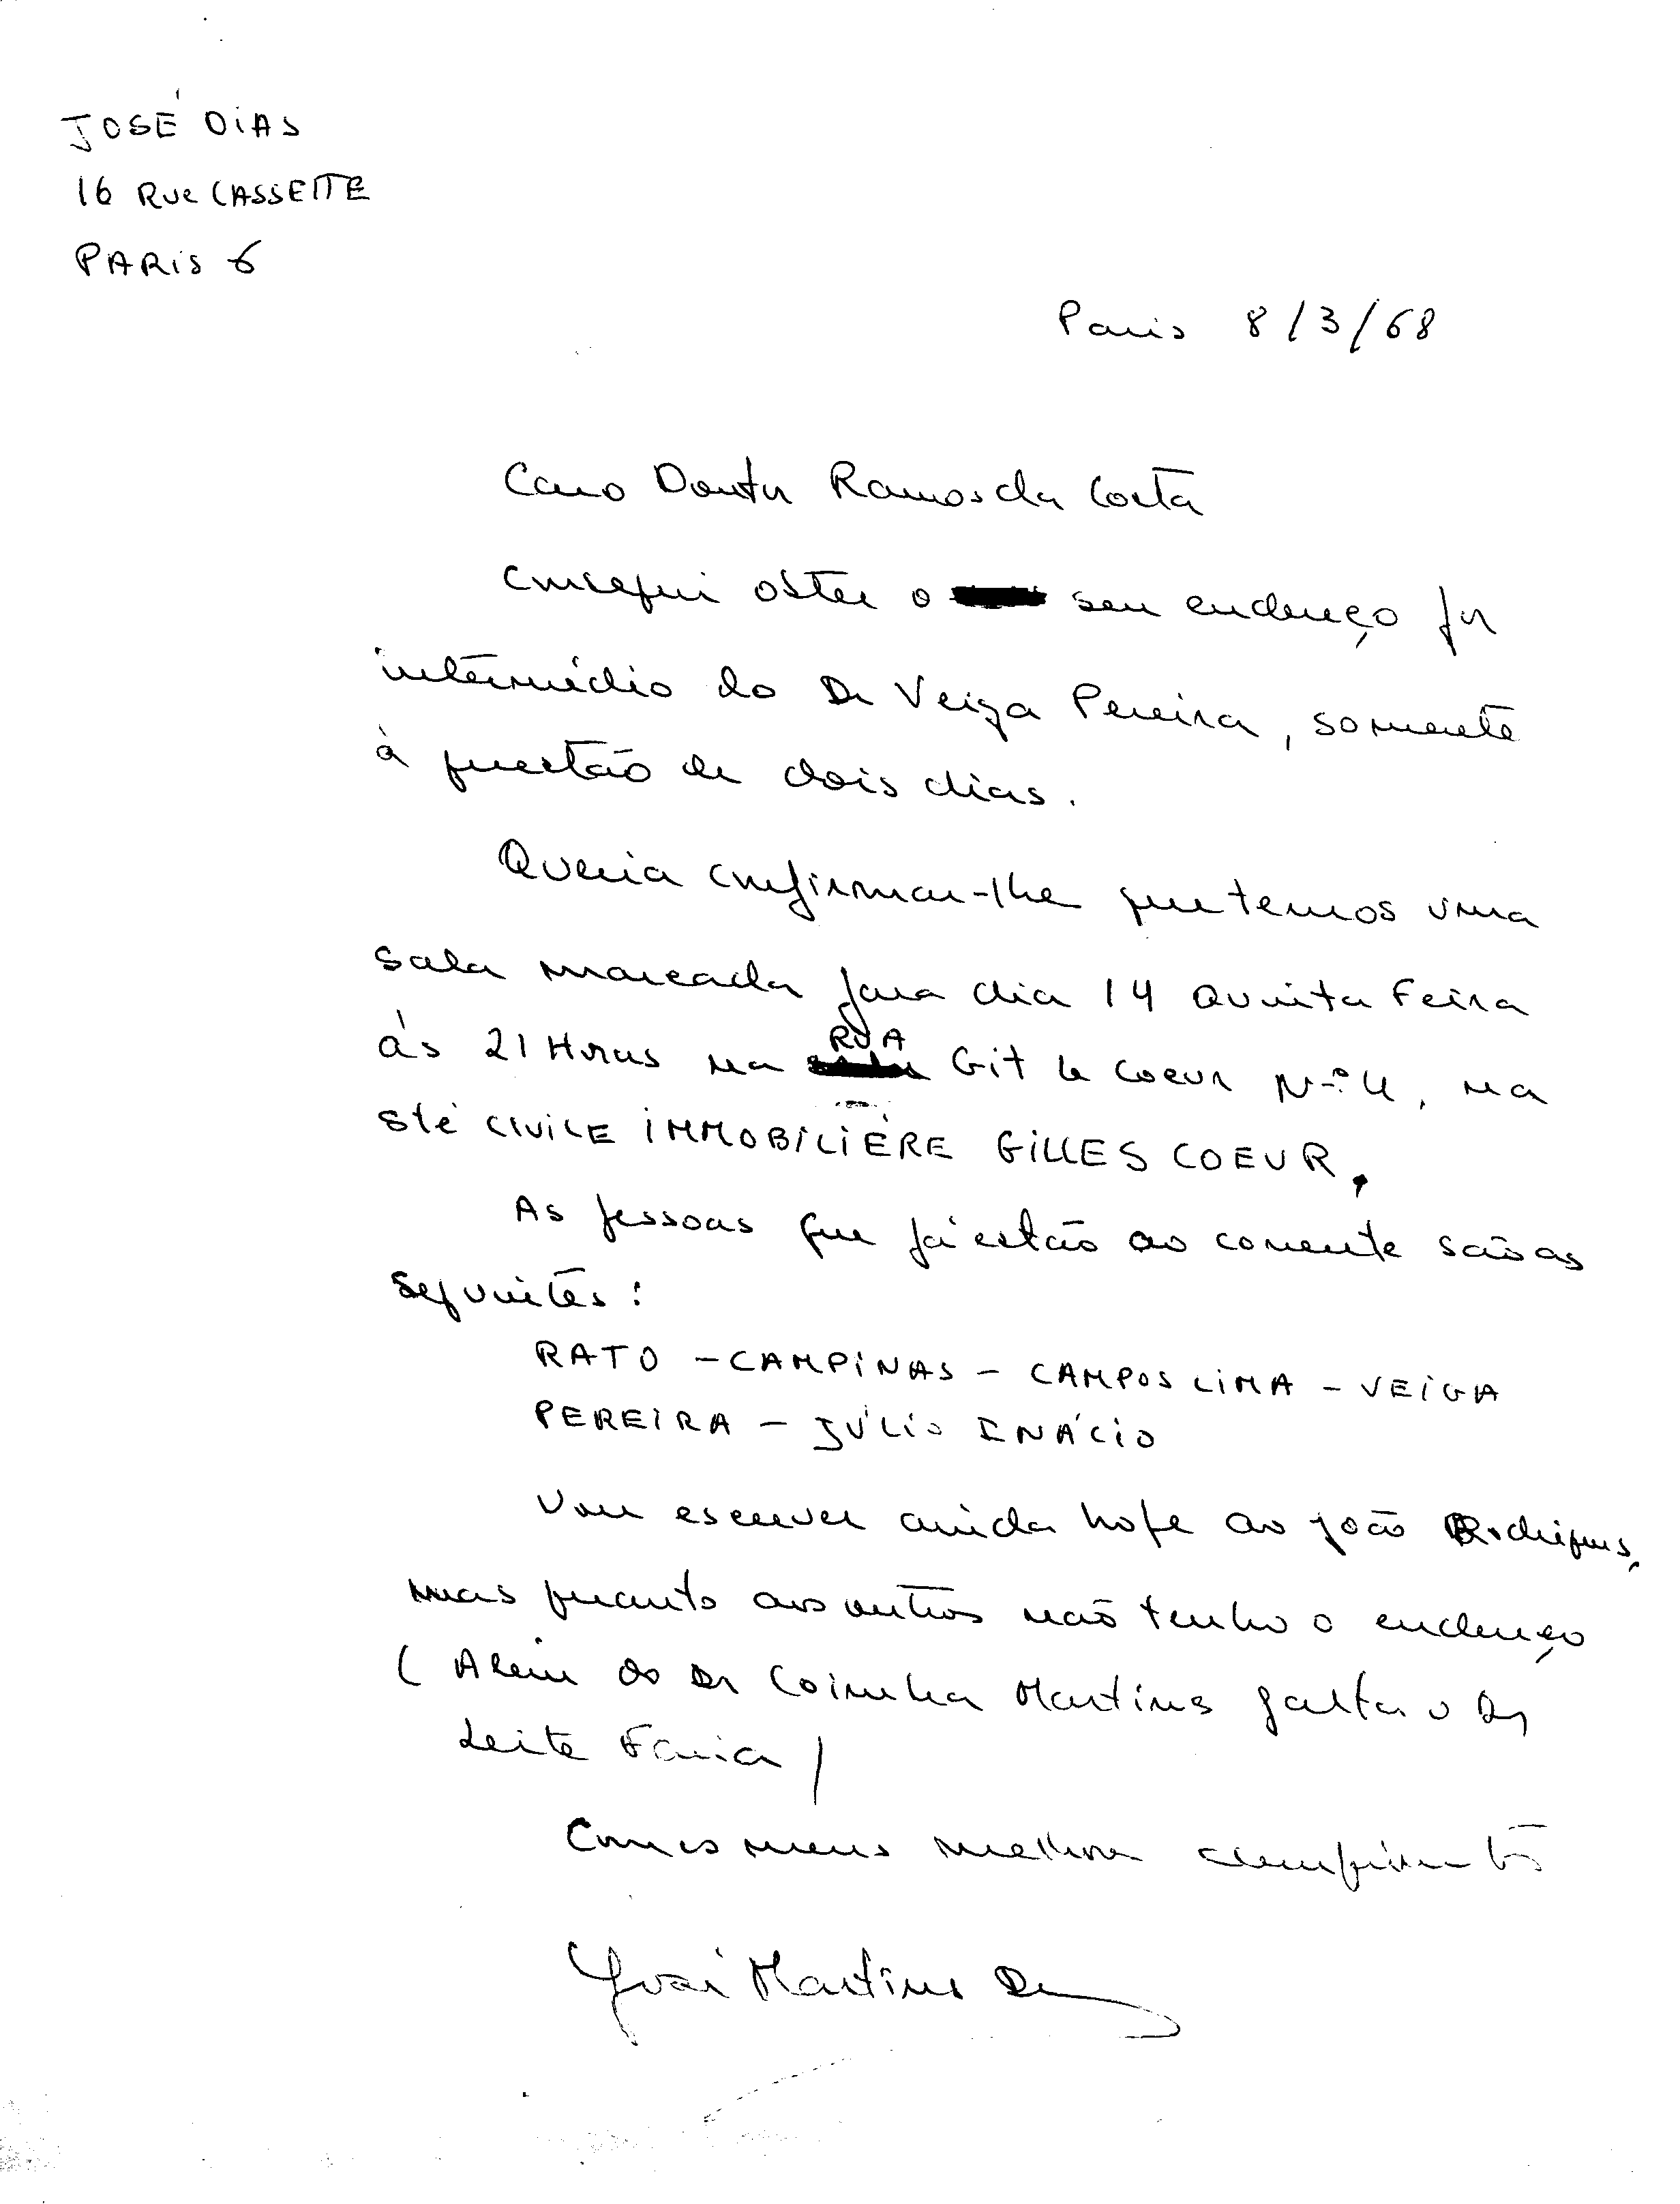 JOSÉ DIAS
16 RUE CASSETTE
PARIS 6
Paris 8/3/68
Caro Doutor Ramos da Costa
Consegui obter o seu endereço por
intermédio do Dr Veiga Pereira, somente
à questão de dois dias.
Queria confirmar-lhe que temos uma
sala marcada para dia 14 Quinta Feira
ás 21 Horas na RUA Git le Coeur Nº 4, na
sté CIVILE IMMOBILIÉRE GILLES COEUR.
As pessoas que já estão ao corrente são as
seguintes:
RATO - CAMPINAS - CAMPOS LIMA - VEIGA
PEREIRA - JÚLIO INÁCIO
Vou escrever ainda hoje ao João Rodrigues,
mas quanto aos outros não tenho o endereço
(Alem do Dr Coimbra Martins falta o Dr
Leite Faria)
Com os meus melhores cumprimentos
José Martins